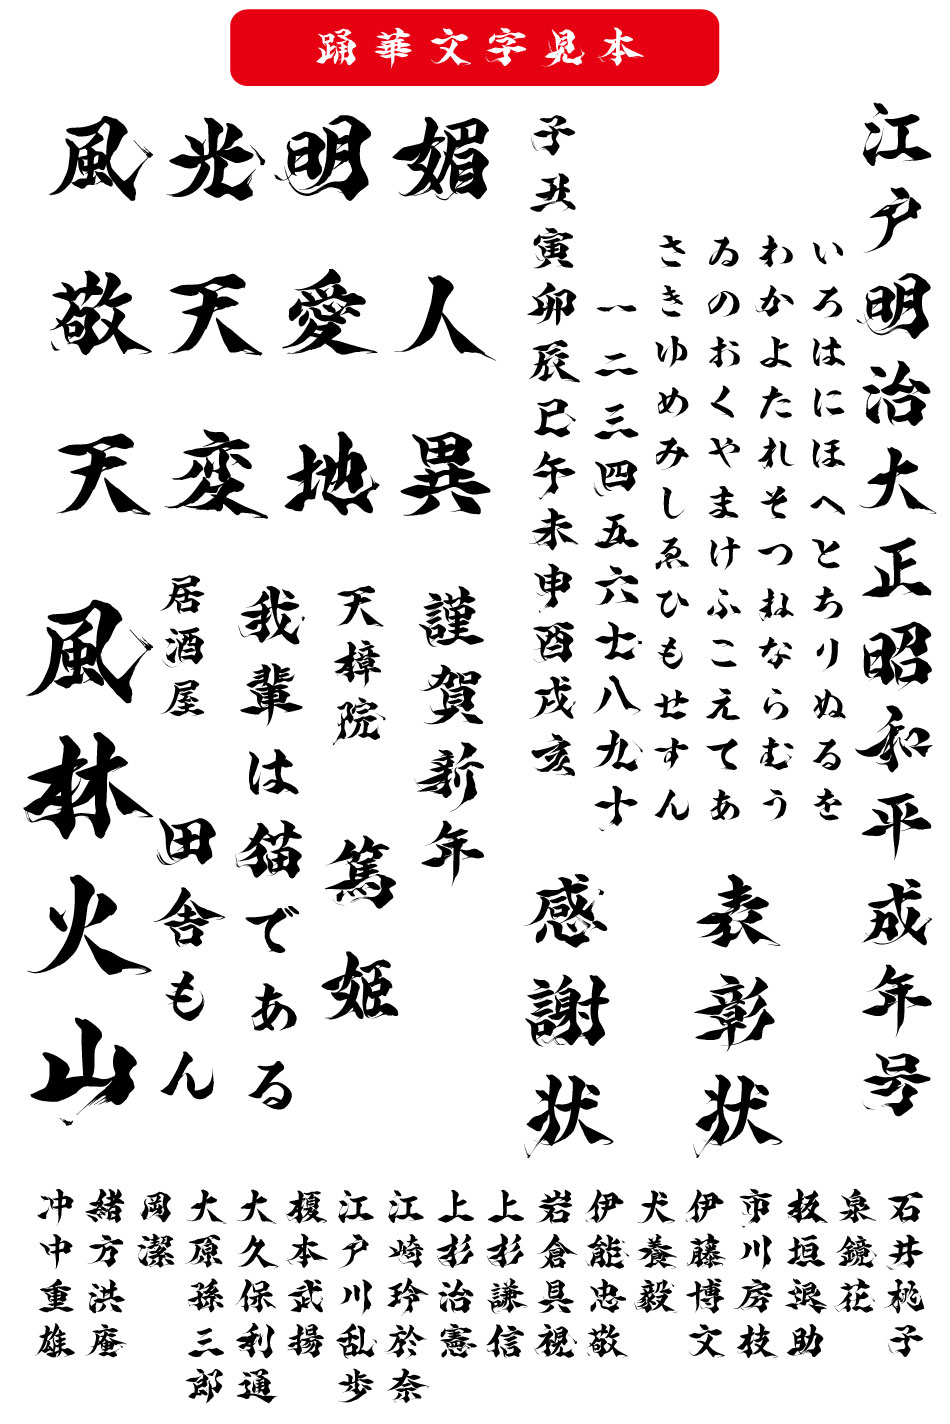 踊華文字見本
江戸明治大正昭和平成年号
いろはにほへとちりぬるを
わかよたれそつねならむう
ゐのおくやまけふこえてあ
さきゆめみしゑひもせすん
一二三四五六七八九十
子丑寅卯辰巳午未申酉戌亥
表彰状
感謝状
風光明媚
敬天愛人
天変地異
謹賀新年
天樟院
篤姫
我輩は猫である
居酒屋
田舎もん
風林火山
石井桃子
泉鏡花
板垣退助
市川房枝
伊藤博文
犬養毅
伊能忠敬
岩倉具視
上杉謙信
上杉治憲
江崎玲於奈
江戸川乱歩
榎本武揚
大久保利通
大原孫三郎
岡潔
緒方洪庵
沖中重雄